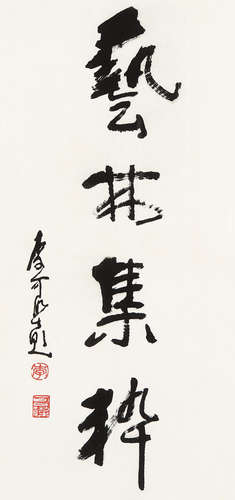 藝林集粹
李可染題